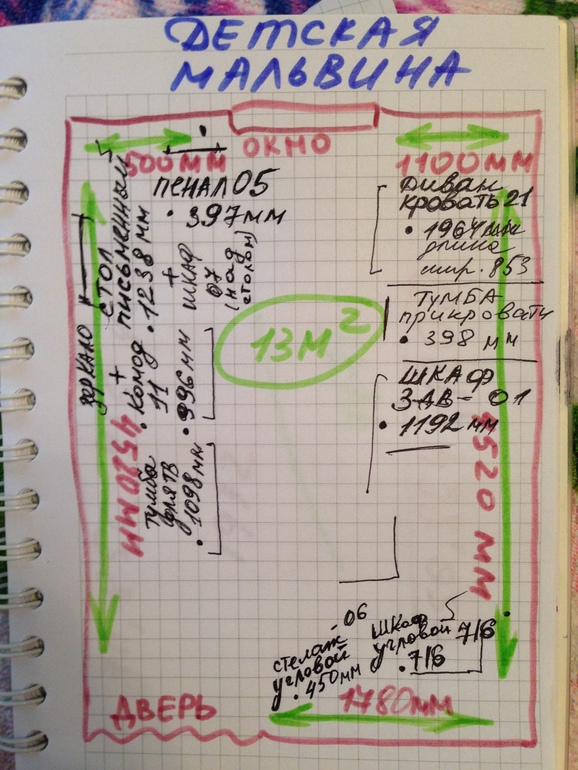 ДЕТСКАЯ
МАЛЬВИНА
ОКНО
500ММ
1100ММ
ПЕНАЛ 05
• 397 мм
ДИВАН
КРОВАТЬ 21
• 1964 мм
длина
шир. 853
ТУМБА
прикровати
• 398 мм
ШКАФ
ЗАВ - 01
• 1192 мм
4520 ММ
13М²
ЗЕРКАЛО
СТОЛ
письменный
+
• 1238 мм
• Комод
11
• 996 мм
+
ШКАФ
07
(над
столом)
Тумба
для ТВ
• 1098 мм
4520 ММ
стелаж 06
угловой
• 450 мм
Шкаф
угловой 716
• 716
ДВЕРЬ
1780мм